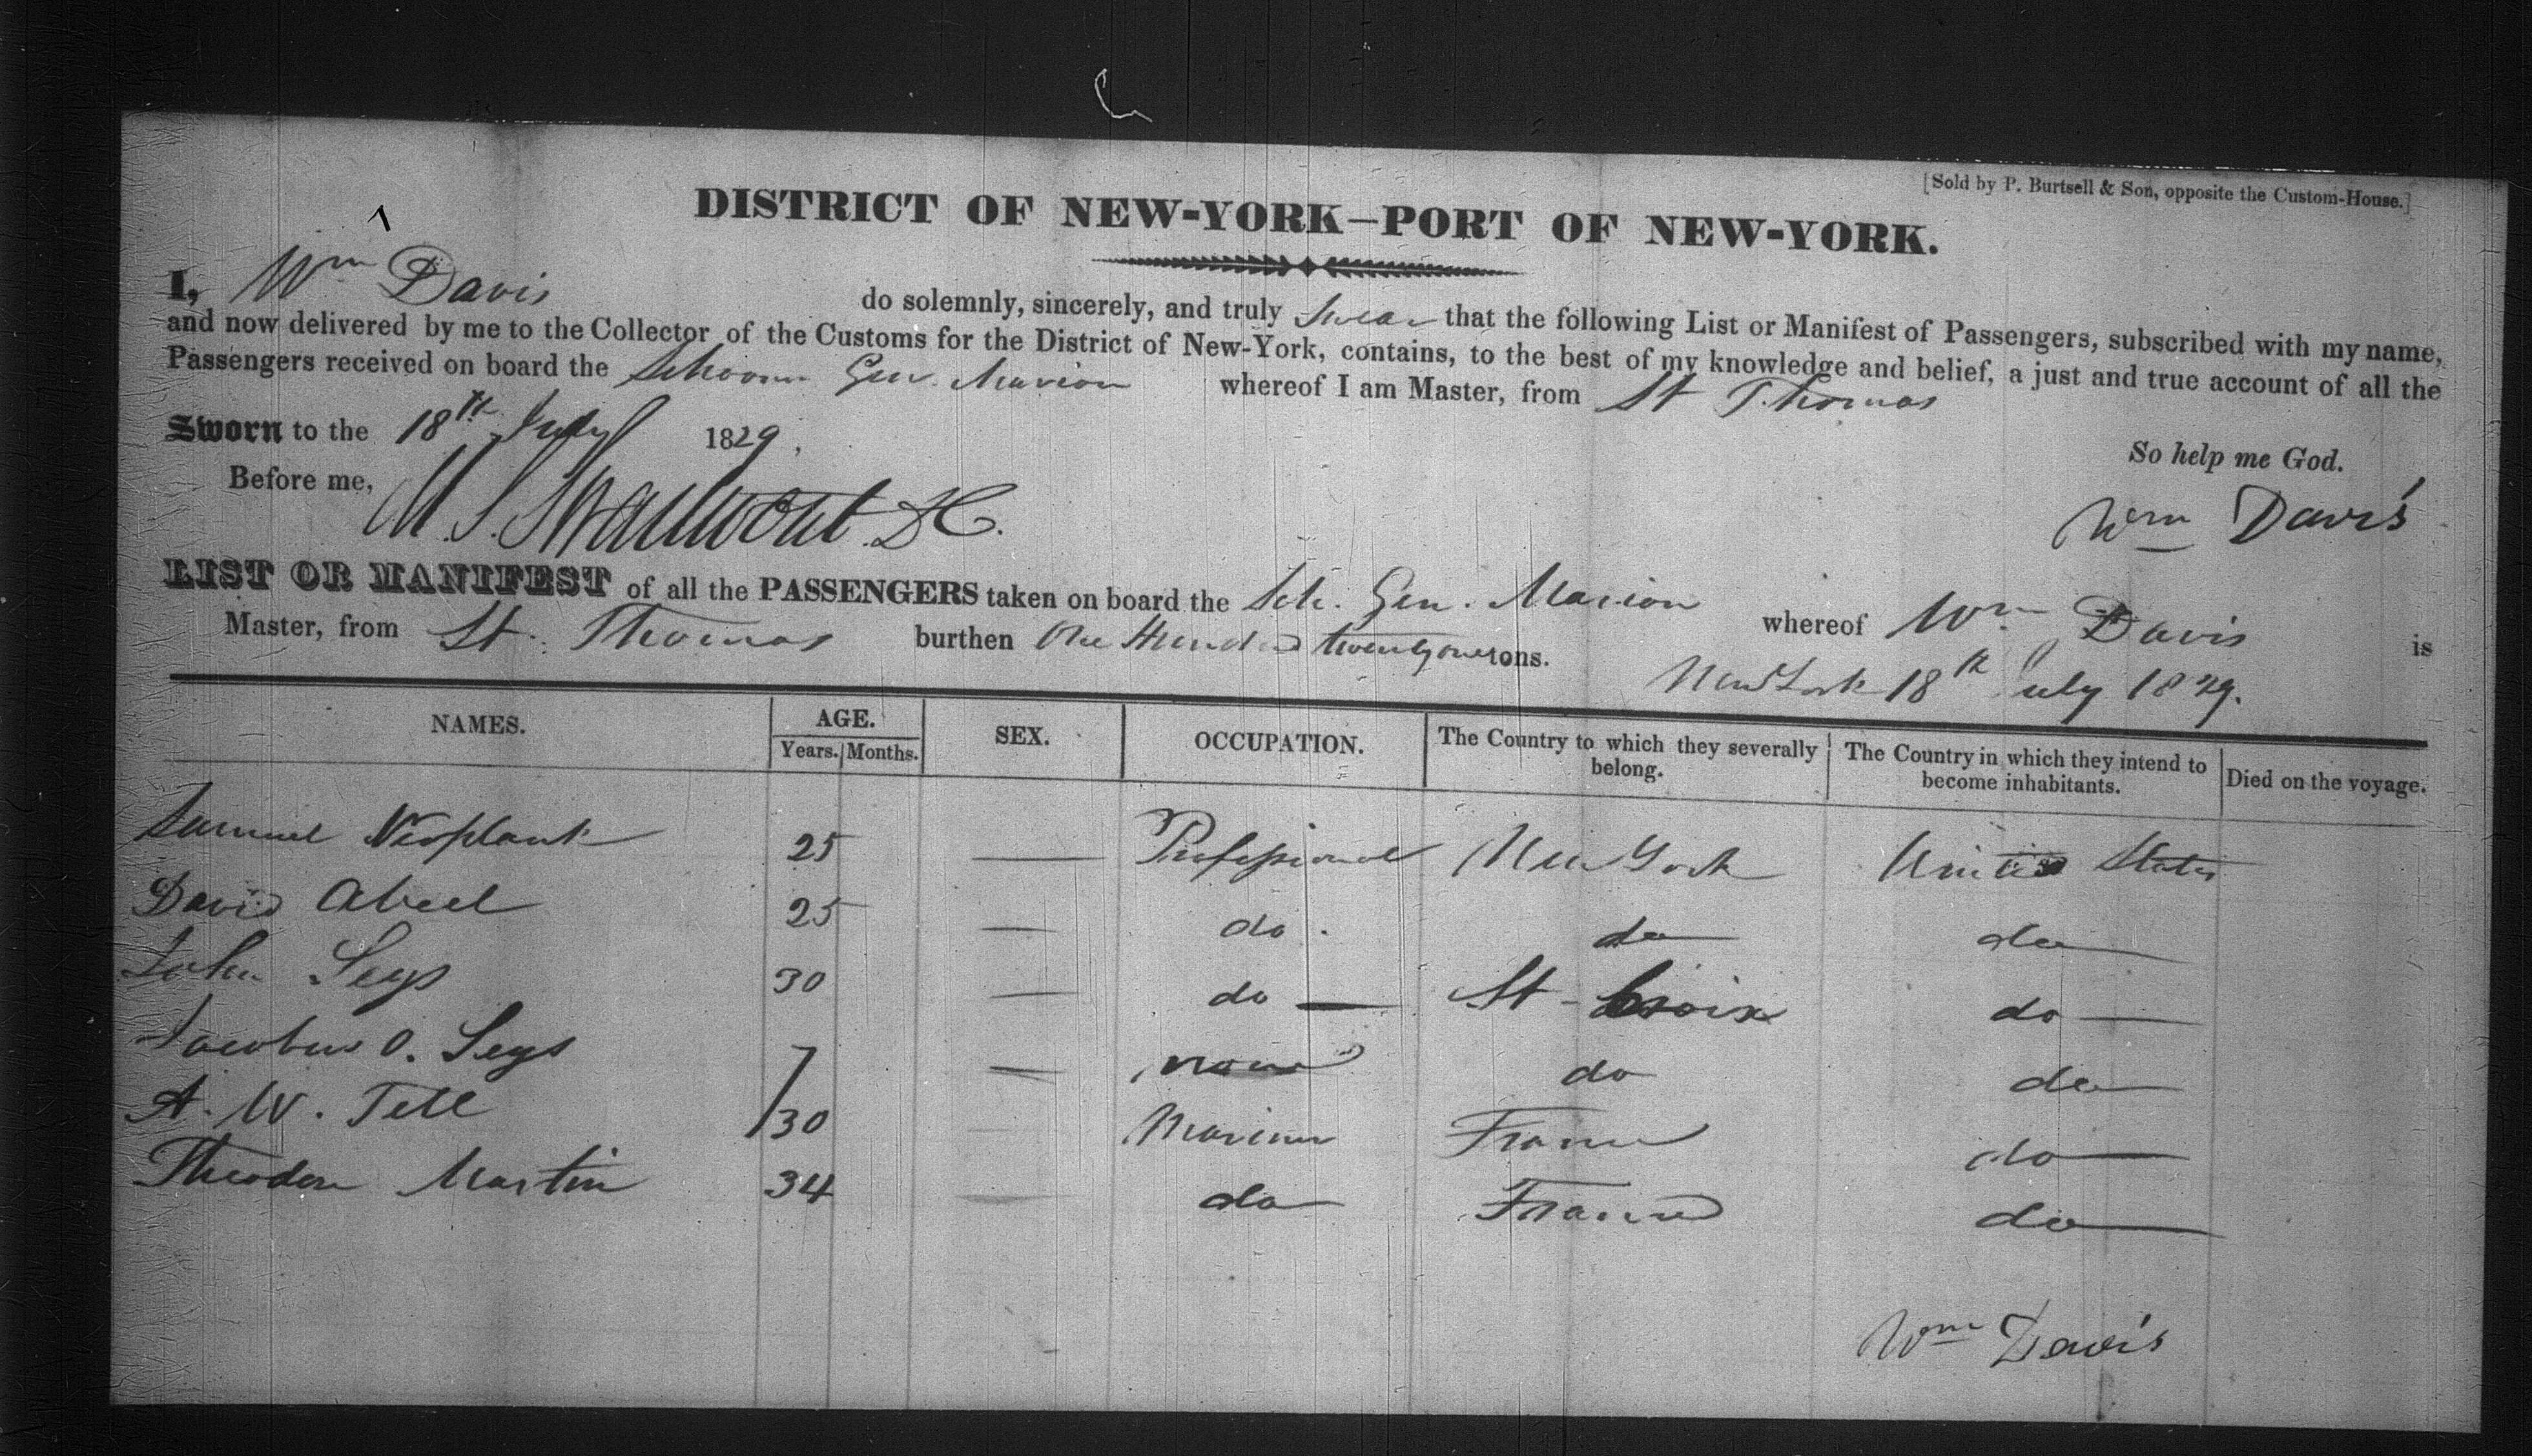 [Sold by P. Burtsell & Son, opposite the Custom-House.]
DISTRICT OF NEW-YORK—PORT OF NEW-YORK.
I, Wm Davis do solemnly, sincerely, and truly swear that the following List or Manifest of Passengers, subscribed with my name,
and now delivered by me to the Collector of the Customs for the District of New-York, contains, to the best of my knowledge and belief, a just and true account of all the
Passengers received on board the Schooner Gen. Marion whereof I am Master, from St Thomas
Sworn to the 18th July 1829.
So help me God.
Before me, D C.
Wm Davis
LIST OR MANIFEST of all the PASSENGERS taken on board the Sch. Gen. Marion whereof Wm Davis is
Master, from St. Thomas burthen One Hundred twenty one tons.
New York 18th July 1829.
NAMES. AGE. SEX. OCCUPATION. The Country to which they severally belong. The Country in which they intend to become inhabitants. Died on the voyage.
Years. Months.
Samuel 25 — Professional New York United States
David Abeel 25 — do. do do
John 30 — do — St Croix do —
Jacobus O. 7 — none do do
A. W. 30 — Mariner France do
Theodore Martin 34 — do France do
Wm Davis